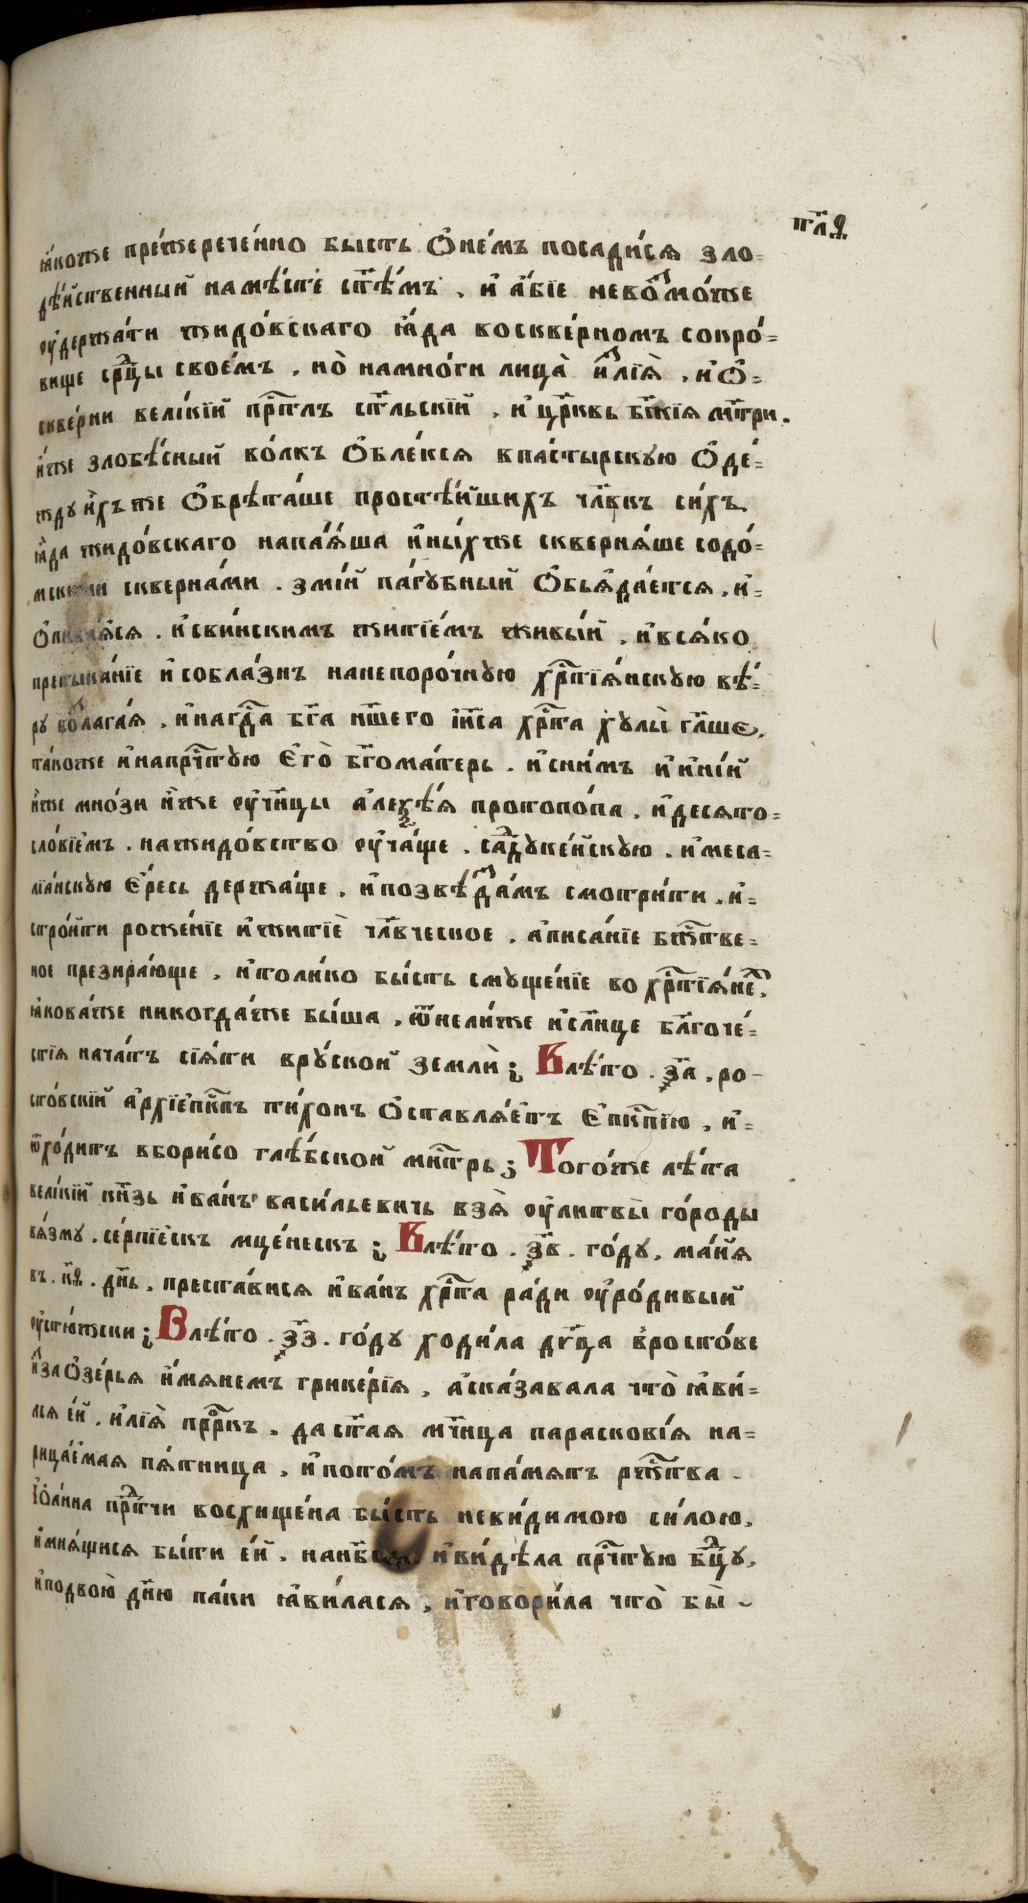 тл҃ѳ
ꙗ́коже пре́жеречéнно бысть ѡ҆не́мъ посади́сѧ зло=
дѣ́йственный намѣ́сте ст҃ѣ́мъ . и҆ а҆́бїе невозмо́же
ѹ҆держа́ти жидо́вскаго ꙗ҆́да восквéрномъ сокро́=
вище ср҃дцы своéмъ , но̀ намно́ги лица̀ и҆злїѧ̀ , и҆ѡ=
сквéрни вели́кїй прⷭ҇тлъ ст҃льскїй , и҆ цр҃ковь бж҃їѧ мт҃ри .
и҆́же злобѣ́сный во́лкъ ѡ҆блéксѧ впáстырскую ѡ҆дé=
жду и҆́хъже ѡ҆брѣта́ше простѣ́йшихъ чл҃вкъ си́хъ
ꙗ҆́да жидо́вскаго напаѧ́ша и҆ны́хже скверня́ше содо́=
мскими сквернáми . змíй пáгубный ѡ҆бьѧда́етсѧ , и҆=
ѡ҆пивáѧсѧ . и҆сви́нскимъ житїéмъ живы́й , и҆всѧ́ко
претыка́нїе и҆собла́знъ нанепоро́чную хрⷭ҇тїѧ́нскую вѣ́=
ру возлага́ѧ , и҆нагдⷭ҇а бг҃а нш҃его і҆и҃са хрⷭ҇та хулы̀ гл҃ше ,
тáкоже и҆напрчⷭ҇тую є҆гò бг҃омáтерь . и҆сни́мъ и҆и҆нíи
и҆́же мно́зи и҆́же ѹ҆чн҃цы а҆леѯѣ́ѧ протопо́па , и҆десѧто=
сло́вїемъ . нажидо́вство ѹ҆ча́ще . саддукéйскую , и҆меса=
лїа́нскую є҆́ресь держа́ще , и҆позвѣзда́мъ смотри́ти , и҆=
стро́йти рожéнїе и҆житїѐ чл҃вческое , а҆писа́нїе бжⷭ҇тве=
ное презира́юще , и҆толи́ко бы́сть смущéнїе во хрⷭ҇тїѧ́нех ,
ꙗ҆ковáже никогдáже бы́ша , ѿнели́же и҆сл҃нце бл҃гоче́=
стїѧ начáтъ сїѧ́ти вру́скои҆ землѝ ; Влѣ́то . ҂з҃а , ро-
сто́вскїй а҆рхїепⷭ҇кпъ ти́хонъ ѡ҆ставлѧ́етъ є҆пкⷭ҇пїю , и҆=
ѿхо́дитъ вбори́со глѣ́бской мнⷭ҇трь ; Того́же лѣ́та
вели́кїй кн҃зь и҆ва́нъ васи́льевичь взѧ̀ ѹ҆литвы̀ го́роды
вѧ́зму , сéрпїескъ мцéнескъ ; Влѣ́то . ҂з҃в . го́ду , мáйѧ
въ . к҃ѳ . дн҃ь , преста́висѧ и҆вáнъ хрⷭ҇та рáди ѹ҆ро́дивый
ѹ҆стю́жски ; Влѣ́то . ҂з҃з . го́ду ходи́ла дв҃ца вросто́ве
и҆заѡ҆зéрья и҆́мянемъ гликéрїѧ , а҆ска́зывала что̀ ꙗ҆ви́=
лсѧ éй , и҆лїѧ̀ прⷪ҇ркъ , да ст҃ая мч҃ница парасковíѧ на=
рица́емая пѧ́тница , и҆пото́мъ напáмѧть рожⷭ҇тва
і҆ѡ҆áнна прⷣтчи восхищéна бы́сть неви́димою си́лою ,
и҆мнѧ́щисѧ бы́ти éй , нанбⷭ҇сѧх и҆ви́дѣла прчⷭ҇тую бцⷣу ,
и҆подвою̀ дн҃ю пáки ꙗ҆ви́ласѧ , и҆говори́ла что̀ бы̀